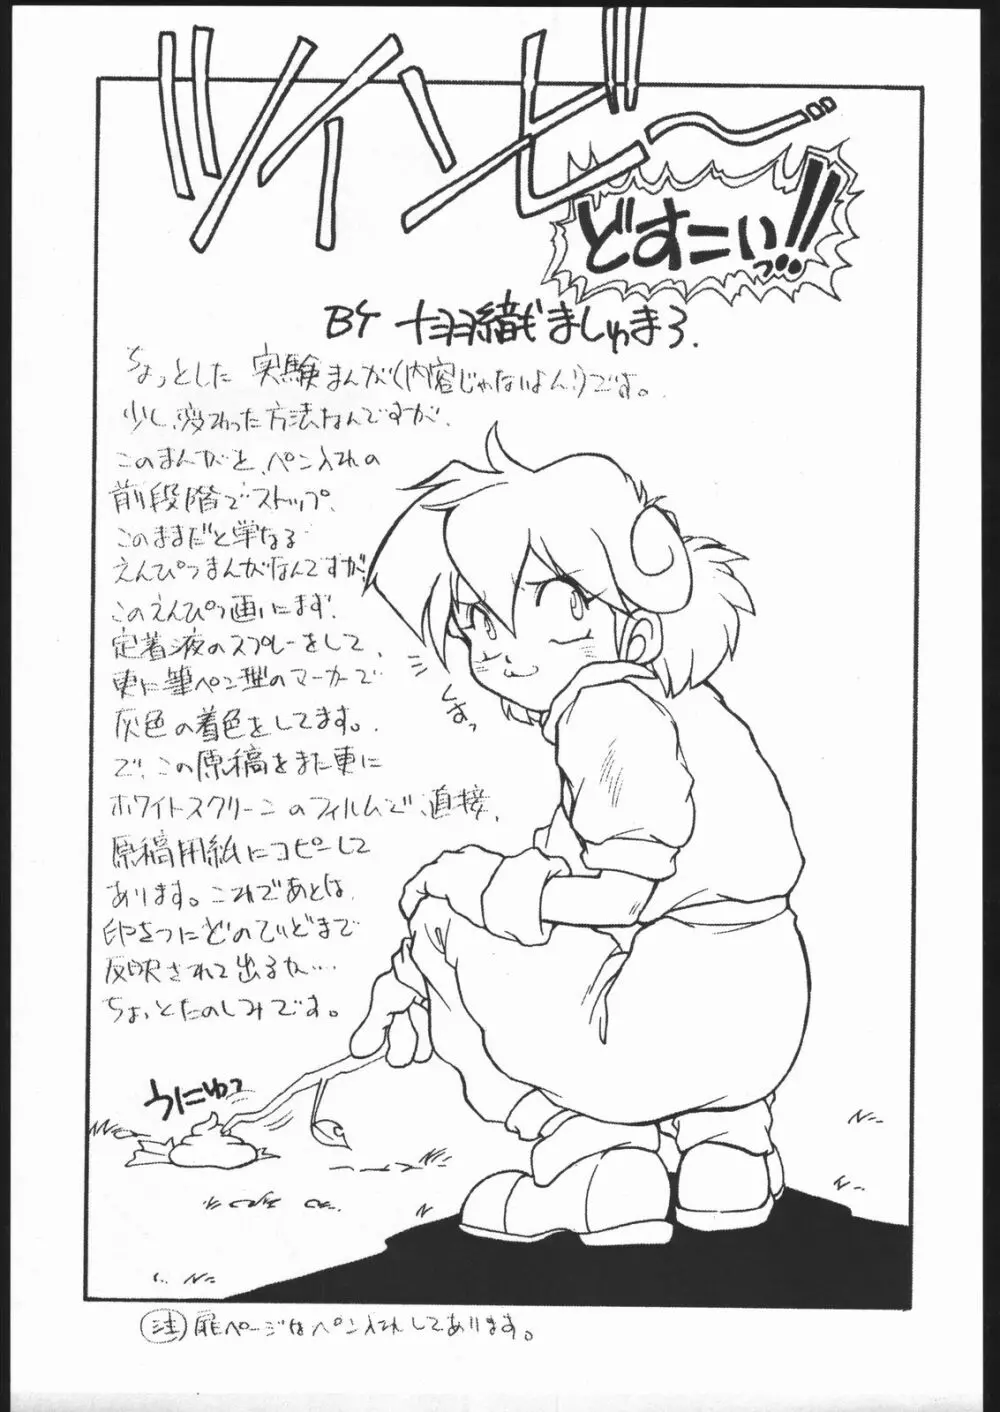 ツインビ〜
どすこいっ!!
BY 十羽織ぎましゅまろ.
ちょっとした 実験まんが(内容じゃないよん!)です。
少し、変わった方法なんですが、
このまんがと、ペン入れの
前段階でストップ。
このままだと単なる
えんぴつまんがなんですが、
このえんぴつ画にまず、
定着液のスプレーをして、
更に筆ペン型のマーカーで
灰色の着色をしてます。
で、この原稿をまた更に
ホワイトスクリーンのフィルムで、直接、
原稿用紙にコピーして
あります。これであとは
印さつにどのていどまで
反映されて出るか…
ちょっとたのしみです。
しまっ
うにゅっ
(注)扉ページはペン入れしてあります。